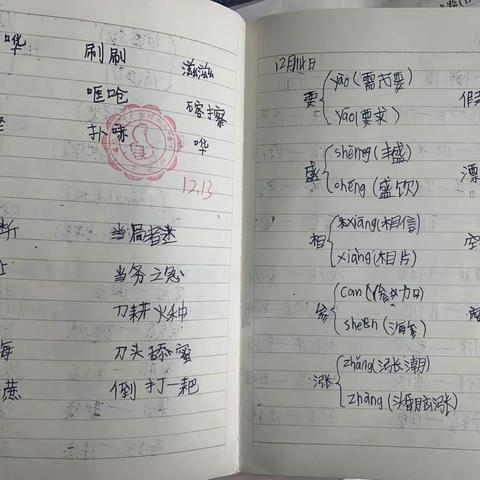 哗 刷刷 滋滋
哐呛 碦擦
扑哧 哗
12.13
当局者迷
当务之急
刀耕火种
刀头舔蜜
蔗 倒打一耙
12月14日
要 yāo(需要)
yào(要求)
盛 shèng(丰盛)
chéng(盛饮)
相 xiāng(相信)
xiàng(相片)
参 can(参加)
shen(海参)
涨 zhǎng(涨潮)
zhàng(头昏脑涨)